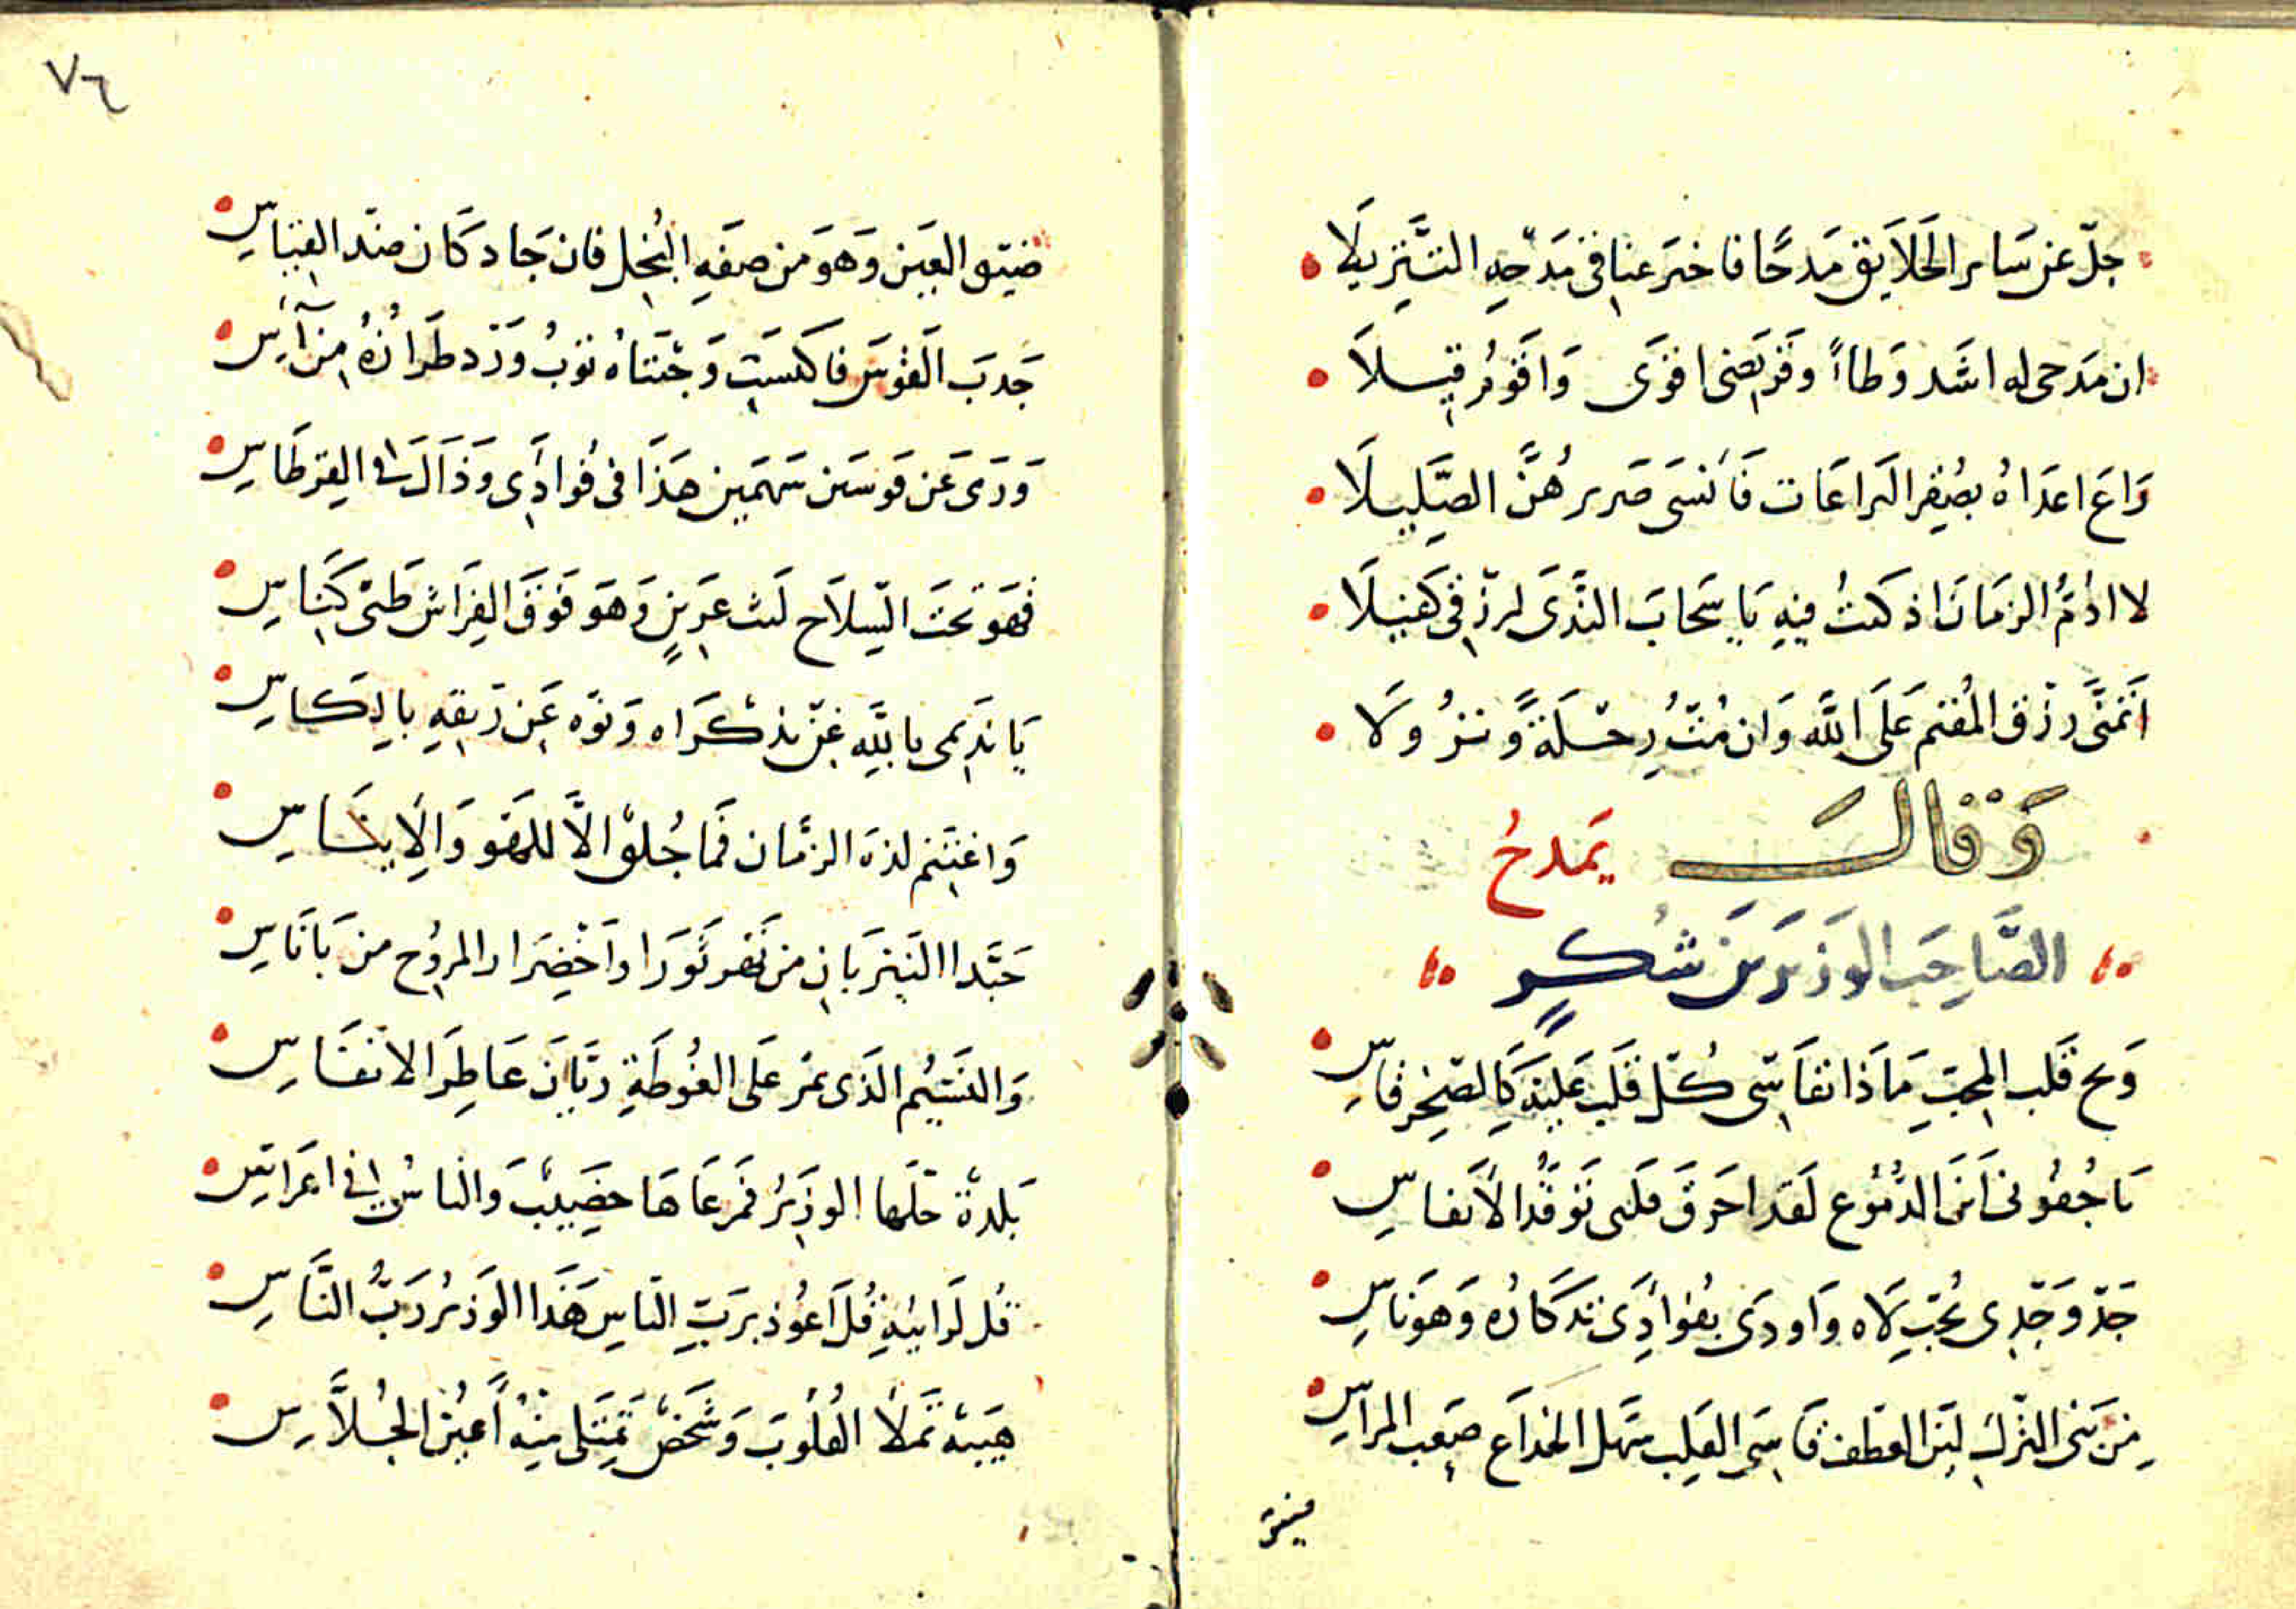 جلّ عن سَاىر الخَلَايق مَدحًا فاختَرعنا فى مَدحِهِ التَّنزيلَا
ان مَدحى له اشَد وَطاءً وقَريضى اقوَى وَاقوَمُ قِيلاَ
رَاعَ اعدَاهُ بصُفرِ اليراعَات فَأنسَى صَريرهُنَّ الصَّلِيلَا
لا اذمُّ الزمَانَ اذ كنتُ فيهِ يَا سَحابَ النَّدَى لرزقى كَفيلَا
أتَمنَّى رزق المقيم عَلَى اللَّه وَان مُتُّ رِحْلَةً ونزُولَا
وَقالَ يَمدحُ
الصَّاحِبَ الوَزيرَ بنَ شُكرٍ
وَيح قَلب المحِبِّ مَاذَا يقَاسِى كُلّ قَلبٍ عَلَيْهِ كَالصَّخرِ قاسِ
يَا جُفُونى أينَ الدُّمُوع لَقَد احَرقَ قلبى تَوَقُّدُ الأنفاسِ
جَدّ وَجْدِى بحُبّ لَاهٍ وَاودَى بفُوادِى تذكَارُه وَهوَ نَاسِ
مِن بَنى التّركِ ليّنُ العَطفِ قَاسِى القَلبِ سَهل الخدَاع صَعب المِرَاسِ
ضيق
٧٦
ضيّق العَين وَهوَ مِن صِفَةِ البُخل فان جَاد كَان ضدّ القِيَاسِ
جَدبَ القَوسَ فاكتست وَجْنتاهُ ثوبُ وَرْد طَرازُهُ مِن آسِ
وَرَمَى عَن قَوسَين سَهمَين هَذَا فى فُوادِى وَذَاكَ فى القِرطَاسِ
فهوَ تحتَ السِّلَاح لَيث عَرِينٍ وَهوَ فَوقَ الفِرَاش ظَبى كِنَاسِ
يَا نَدِيمى باللَّهِ غنّ بذكرَاه وَنوّه عَن رِيقهِ بالكاسِ
وَاغتَنِم لذة الزمَان فمَا خُلق الاَّ للهَو وَالإينَاسِ
حَبّذا النَّيربَان من نَهر ثَوْرَا وَاخْضِرَار المرُوج من بَانَاسِ
وَالنّسِيم الذَى يَمُر عَلَى الغُوطَةِ ريَّان عَاطِرَ الانفَاسِ
بَلدَة حَلّها الوَزِيرُ فمَرعَاهَا خَصِيبٌ وَالناسُ فى اعرَاسِ
قُل لرَائيهِ قُل اَعُوذ برَبّ النّاسِ هَذَا الوَزيرُ رَبُّ النَّاسِ
هَيبة تَملأ القُلُوبَ وَشَخصٌ تَمتَلى مِنهُ أعيُن الجُلاَّسِ